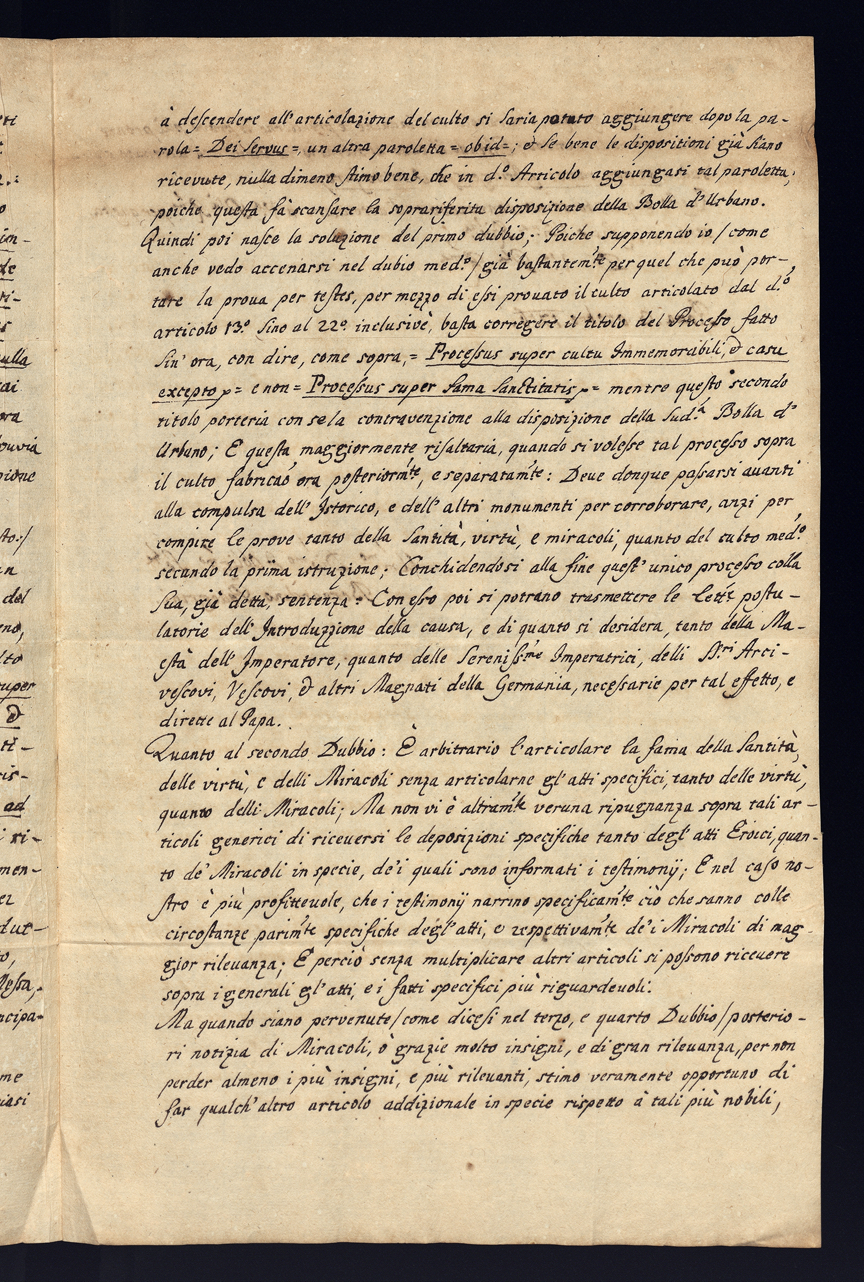 à descendere all'articolazione del culto si saria potuto aggiungere dopo la pa-
rola = Dei Servus =, un altra paroletta = obid =; e se bene le dispositioni già siano
ricevute, nulla dimeno stimo bene, che in d.º Articolo aggiungasi tal paroletta,
poiche questa fà scansare la soprariferita disposizione della Bolla d'Urbano.
Quindi poi nasce la soluzione del primo dubbio; Poiche supponendo io /come
anche vedo accenarsi nel dubio med.º/ già bastantem.te per quel che può por-
tare la prova per testes, per mezzo di essi provato il culto articolato dal d.º
articolo 13.º sino al 22.º inclusivè, basta corregere il titolo del Processo fatto
sin' ora, con dire, come sopra, = Processus super cultu Immemorabili, & casu
excepto = e non = Processus super fama Sanctitatis = mentre questo secondo
titolo porteria con se la contravenzione alla disposizione della sud.a Bolla d'
Urbano; E questa maggiormente risaltaria, quando si volesse tal processo sopra
il culto fabricaõ ora posteriorm.te, e separatam.te: Deve donque passarsi avanti
alla compulsa dell'Istorico, e dell'altri monumenti per corroborare, anzi per
compire le prove tanto della Santità, virtù, e miracoli, quanto del culto med.º
secondo la prima istruzione; Conchidendosi alla fine quest'unico processo colla
sua, già detta, sentenza = Con esso poi si potrano trasmettere le lett.e postu-
latorie dell'Introduzzione della causa, e di quanto si desidera, tanto della Ma-
està dell'Imperatore, quanto delle Sereniss.me Imperatrici, delli SS.ri Arci-
vescovi, Vescovi, & altri Magnati della Germania, necessarie per tal effetto, e
dirette al Papa.
Quanto al secondo Dubbio: È arbitrario l'articolare la fama della Santità,
delle virtù, e delli Miracoli senza articolarne gl'atti specifici, tanto delle virtù,
quanto delli Miracoli; Ma non vi è altram.te veruna ripugnanza sopra tali ar-
ticoli generici di riceversi le deposizioni specifiche tanto degl'atti Eroici, quan-
to de' Miracoli in specie, de'i quali sono informati i testimonij; E nel caso no-
stro è più profittevole, che i testimonij narrino specificam.te ciò che sanno colle
circostanze parim.te specifiche degl'atti, e respettivam.te de'i Miracoli di mag-
gior rilevanza; E perciò senza multiplicare altri articoli si possono ricevere
sopra i generali gl'atti, e i fatti specifici più riguardevoli.
Ma quando siano pervenute /come dicesi nel terzo, e quarto Dubbio/ posterio-
ri notizia di Miracoli, ò grazie molto insigni, e di gran rilevanza, per non
perder almeno i più insigni, e più rilevanti, stimo veramente opportuno di
far qualch'altro articolo addizionale in specie rispetto à tali più nobili,